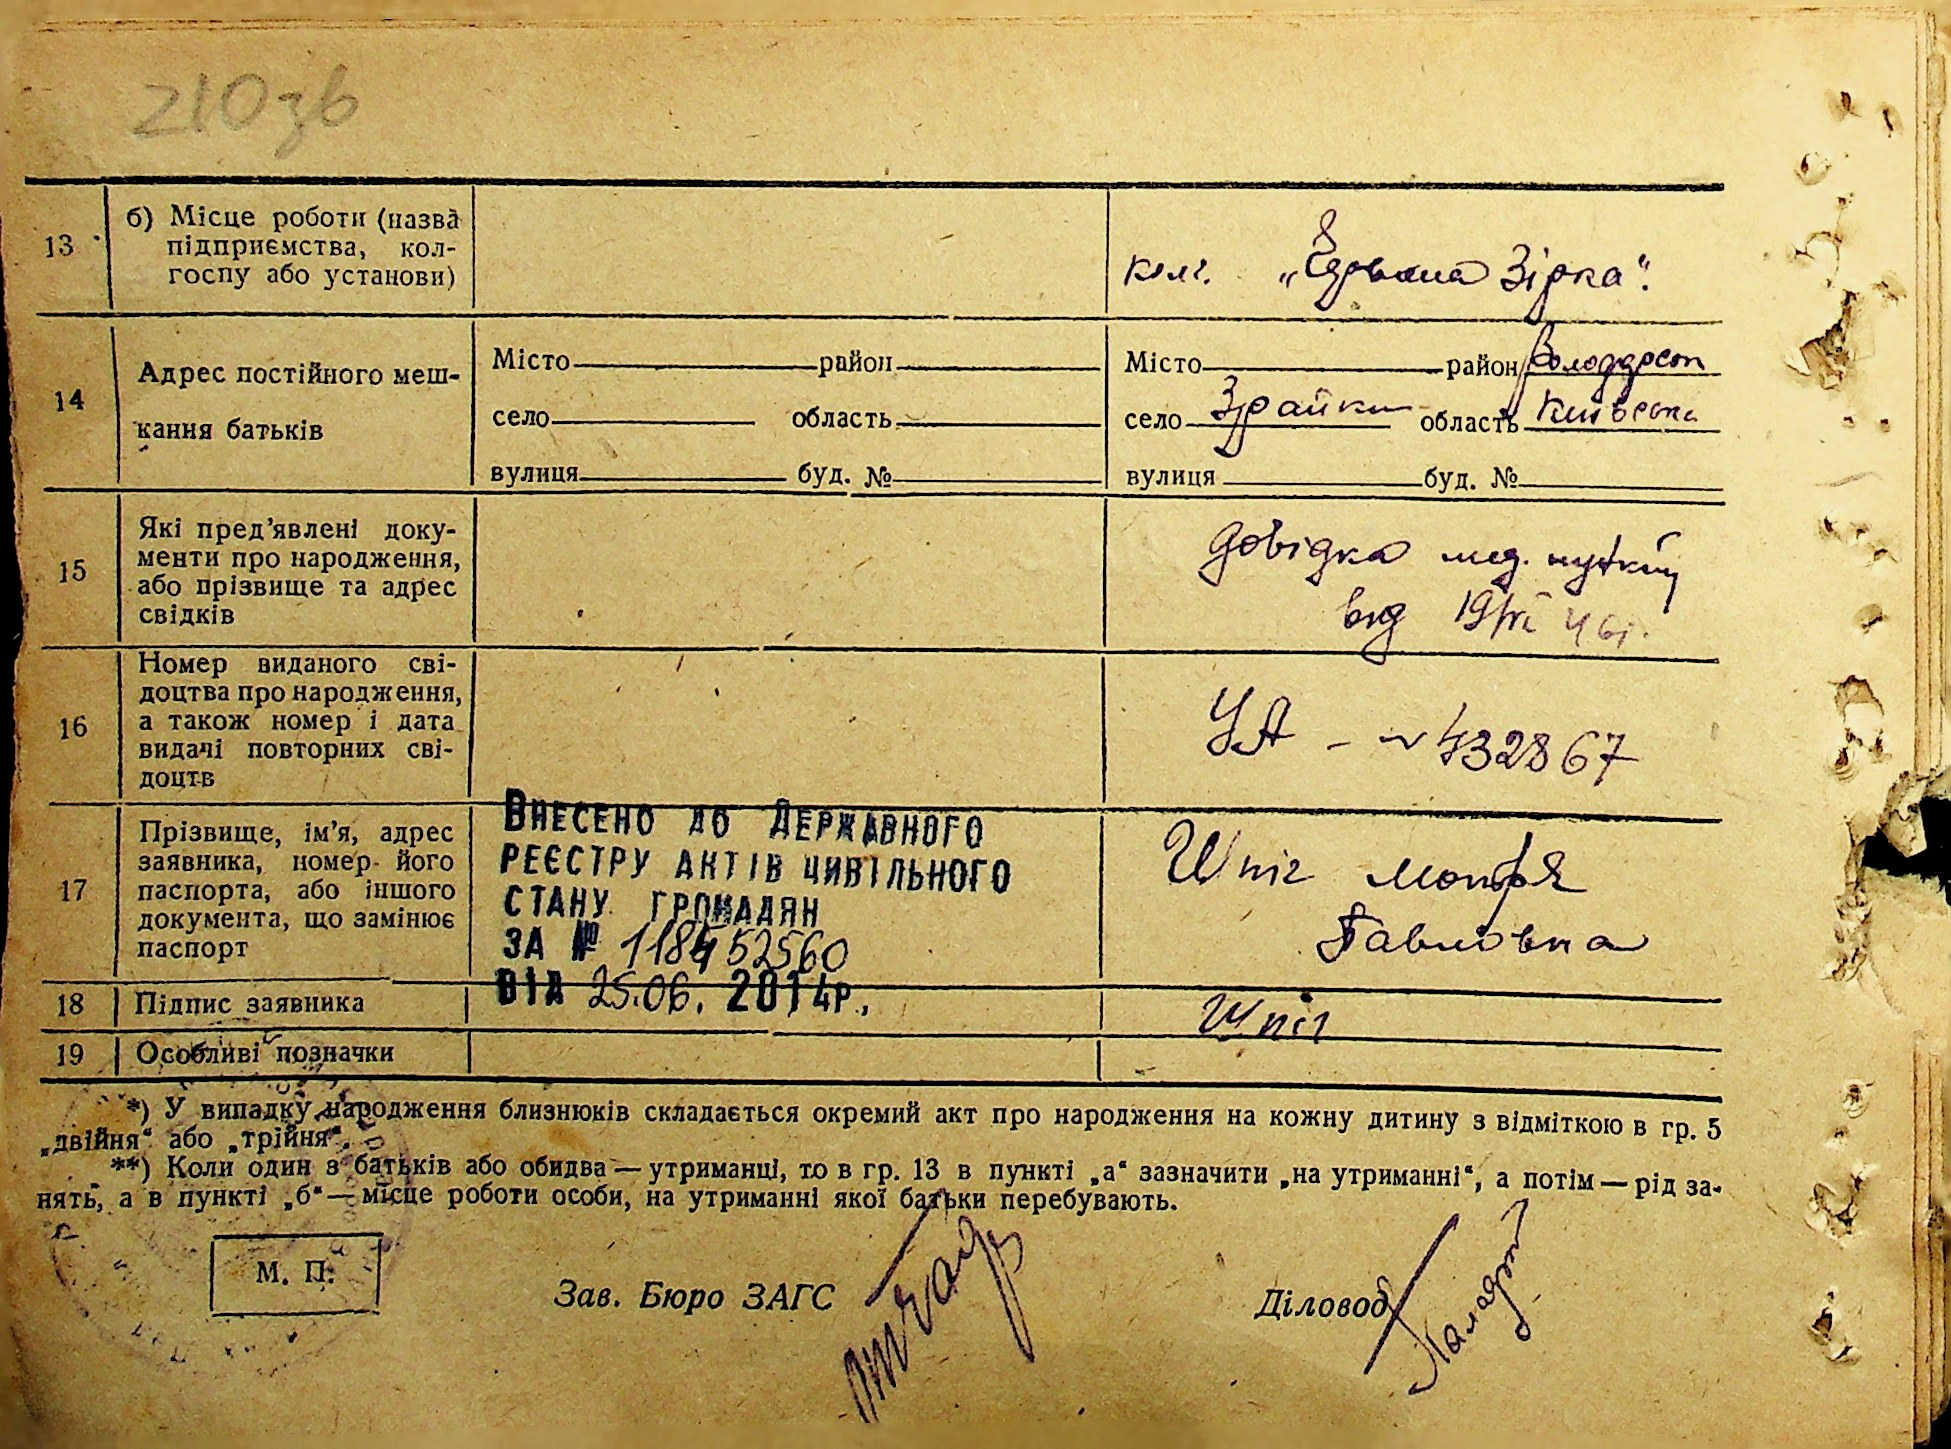 210 зв
13
б) Місце роботи (назва
підприємства, кол-
госпу або установи)
колг. „Червона Зірка".
14
Адрес постійного меш-
кання батьків
Місто район
село область
вулиця буд. №
Місто район Володарськ
село Зрайки область Київська
вулиця буд. №
15
Які пред'явлені доку-
менти про народження,
або прізвище та адрес
свідків
Довідка мед. пункту
від
16
Номер виданого сві-
доцтва про народження,
а також номер і дата
видачі повторних сві-
доцтв
УА – № 432867
17
Прізвище, ім'я, адрес
заявника, номер його
паспорта, або іншого
документа, що замінює
паспорт
Внесено до Державного
реєстру актів цивільного
стану громадян
за № 118452560
від 25.06. 2014р.,
Шпіг Мотря
Павловна
18
Підпис заявника
Шпіг
19
Особливі позначки
*) У випадку народження близнюків складається окремий акт про народження на кожну дитину з відміткою в гр. 5
„двійня“ або „трійня“.
**) Коли один з батьків або обидва — утриманці, то в гр. 13 в пункті „а“ зазначити „на утриманні“, а потім — рід за-
нять, а в пункті „б“ — місце роботи особи, на утриманні якої батьки перебувають.
М. П.
Зав. Бюро ЗАГС
Діловод